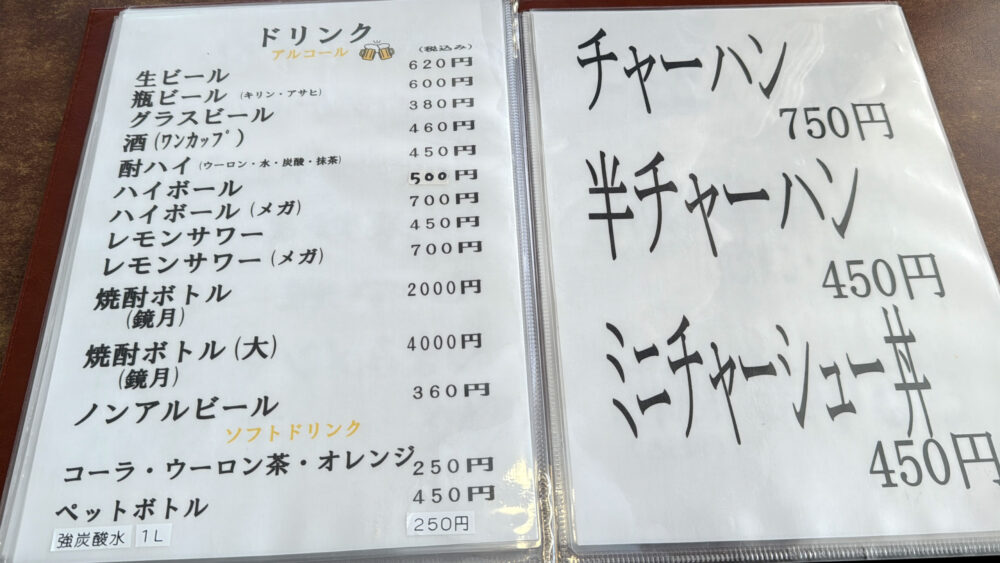 ドリンク
アルコール
(税込み)
生ビール 620円
瓶ビール (キリン・アサヒ) 600円
グラスビール 380円
酒(ワンカップ) 460円
酎ハイ(ウーロン・水・炭酸・抹茶) 450円
ハイボール 500円
ハイボール(メガ) 700円
レモンサワー 450円
レモンサワー(メガ) 700円
焼酎ボトル 2000円
(鏡月)
焼酎ボトル(大) 4000円
(鏡月)
ノンアルビール 360円
ソフトドリンク
コーラ・ウーロン茶・オレンジ 250円
ペットボトル 450円
強炭酸水 1L 250円
チャーハン
750円
半チャーハン
450円
ミニチャーシュー丼
450円